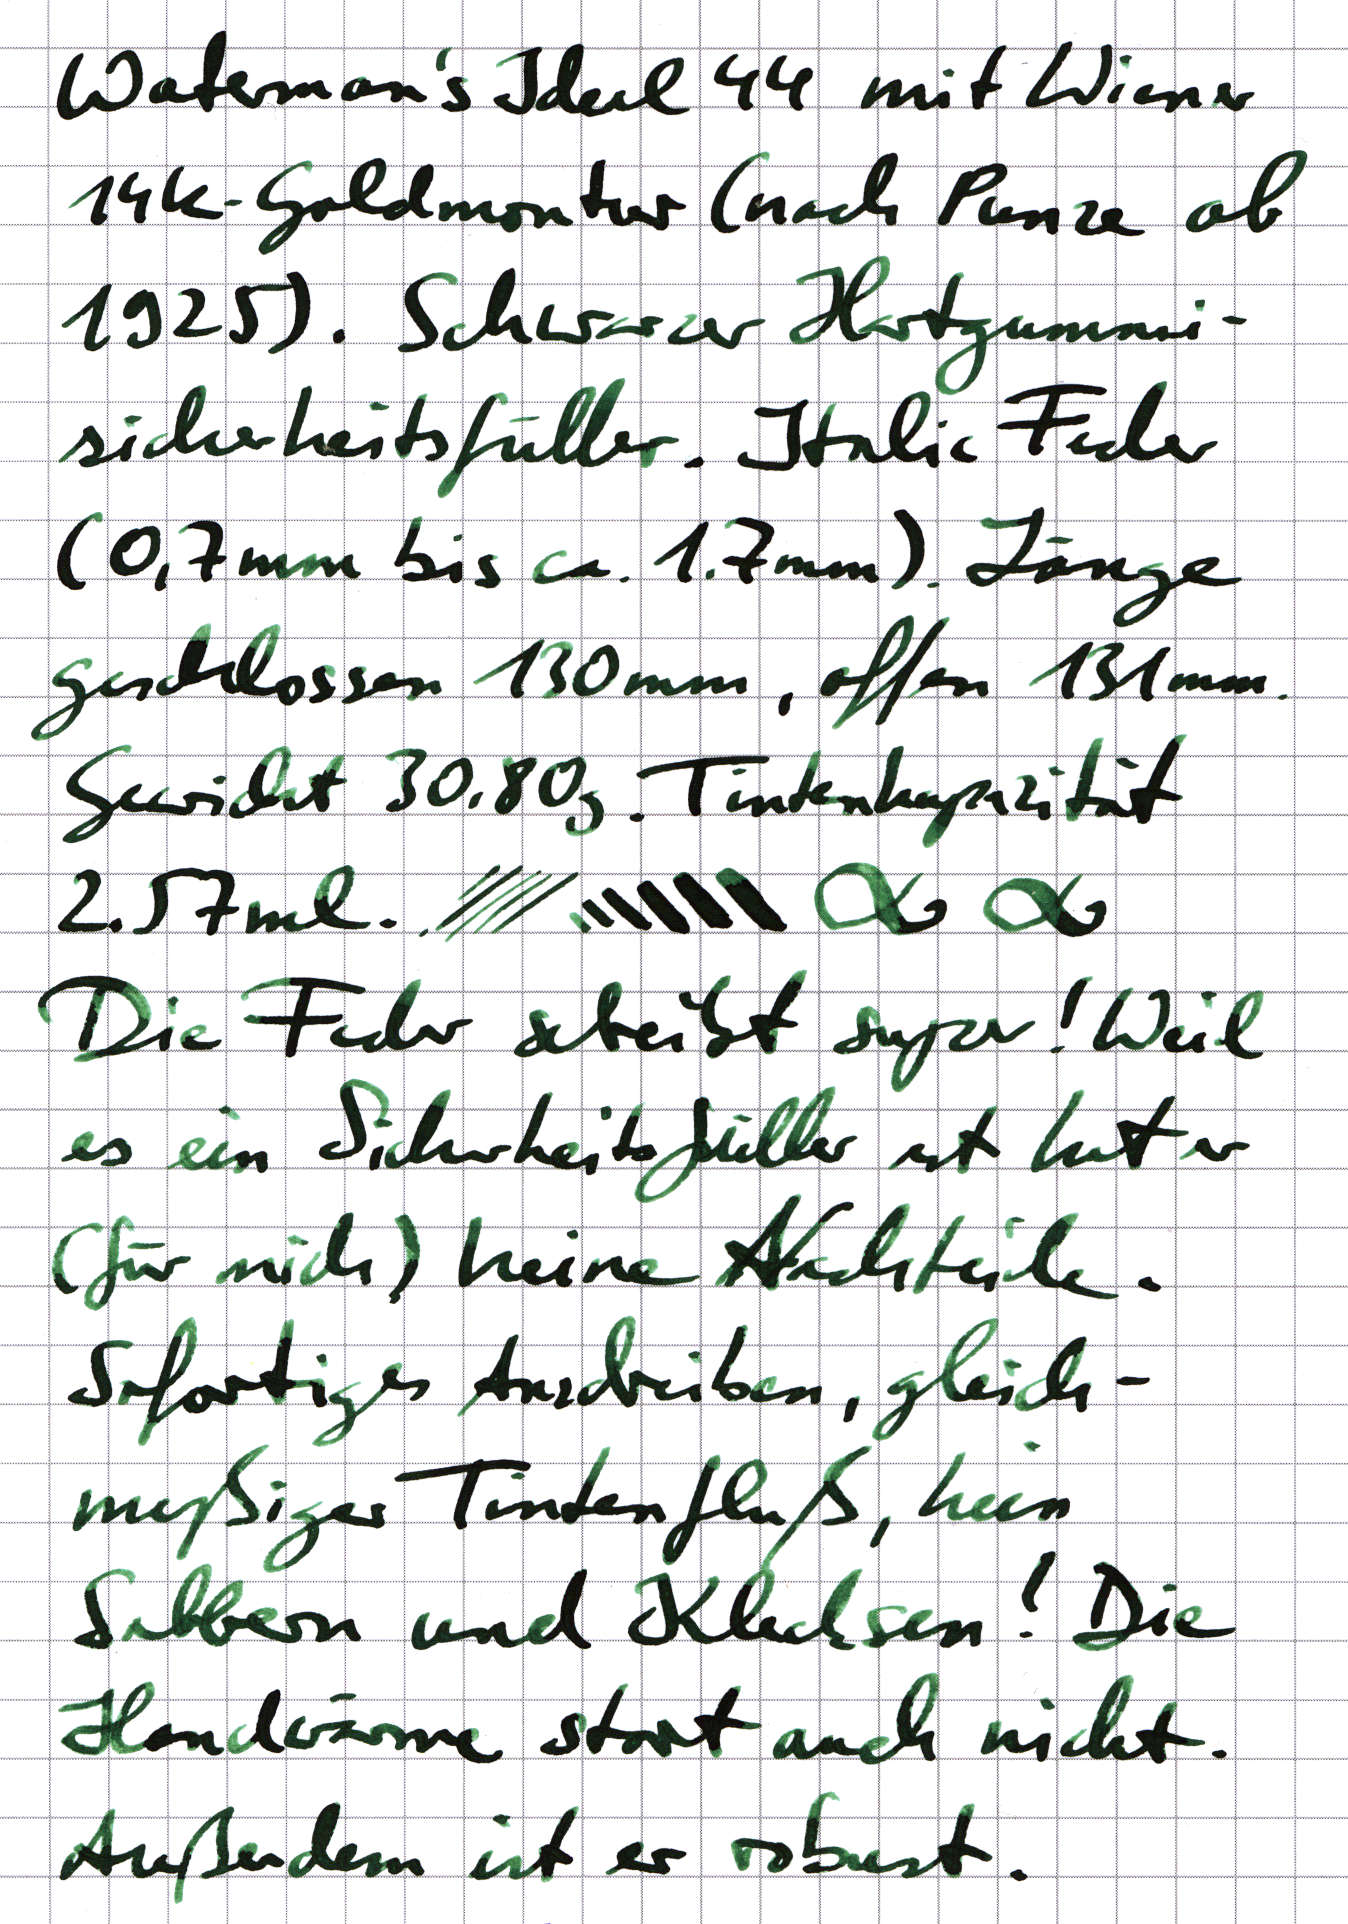 Waterman's Ideal 44 mit Wiener
14k-Goldmontur (nach Punze ab
1925). Schwarzer Hartgummi-
sicherheitsfüller. Italic Feder
(0,7mm bis ca. 1.7mm). Länge
geschlossen 130mm, offen 131mm.
Gewicht 30.80g. Tintenkapazität
2.57ml.
Die Feder schreibt super! Weil
es ein Sicherheitsfüller ist hat er
(für mich) keine Nachteile.
Sofortiges Anschreiben, gleich-
mäßiger Tintenfluß, kein
Sabbern und Klecksen! Die
Handwärme stört auch nicht.
Außerdem ist er robust.